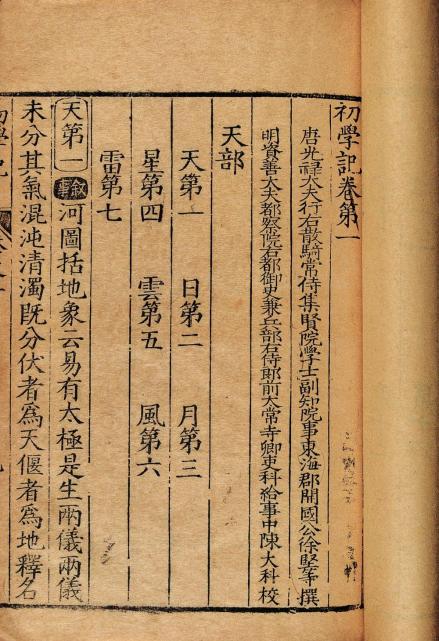 初學記卷第一
唐光祿大夫行右散騎常侍集賢院學士副知院事東海郡開國公徐堅等撰
明資善大夫都察院右都御史兼兵部右侍郎前太常寺卿吏科給事中陳大科校
天部
天第一 日第二 月第三
星第四 雲第五 風第六
雷第七
天第一 敘事 河圖括地象云易有太極是生兩儀兩儀
未分其氣混沌清濁既分伏者為天偃者為地釋名